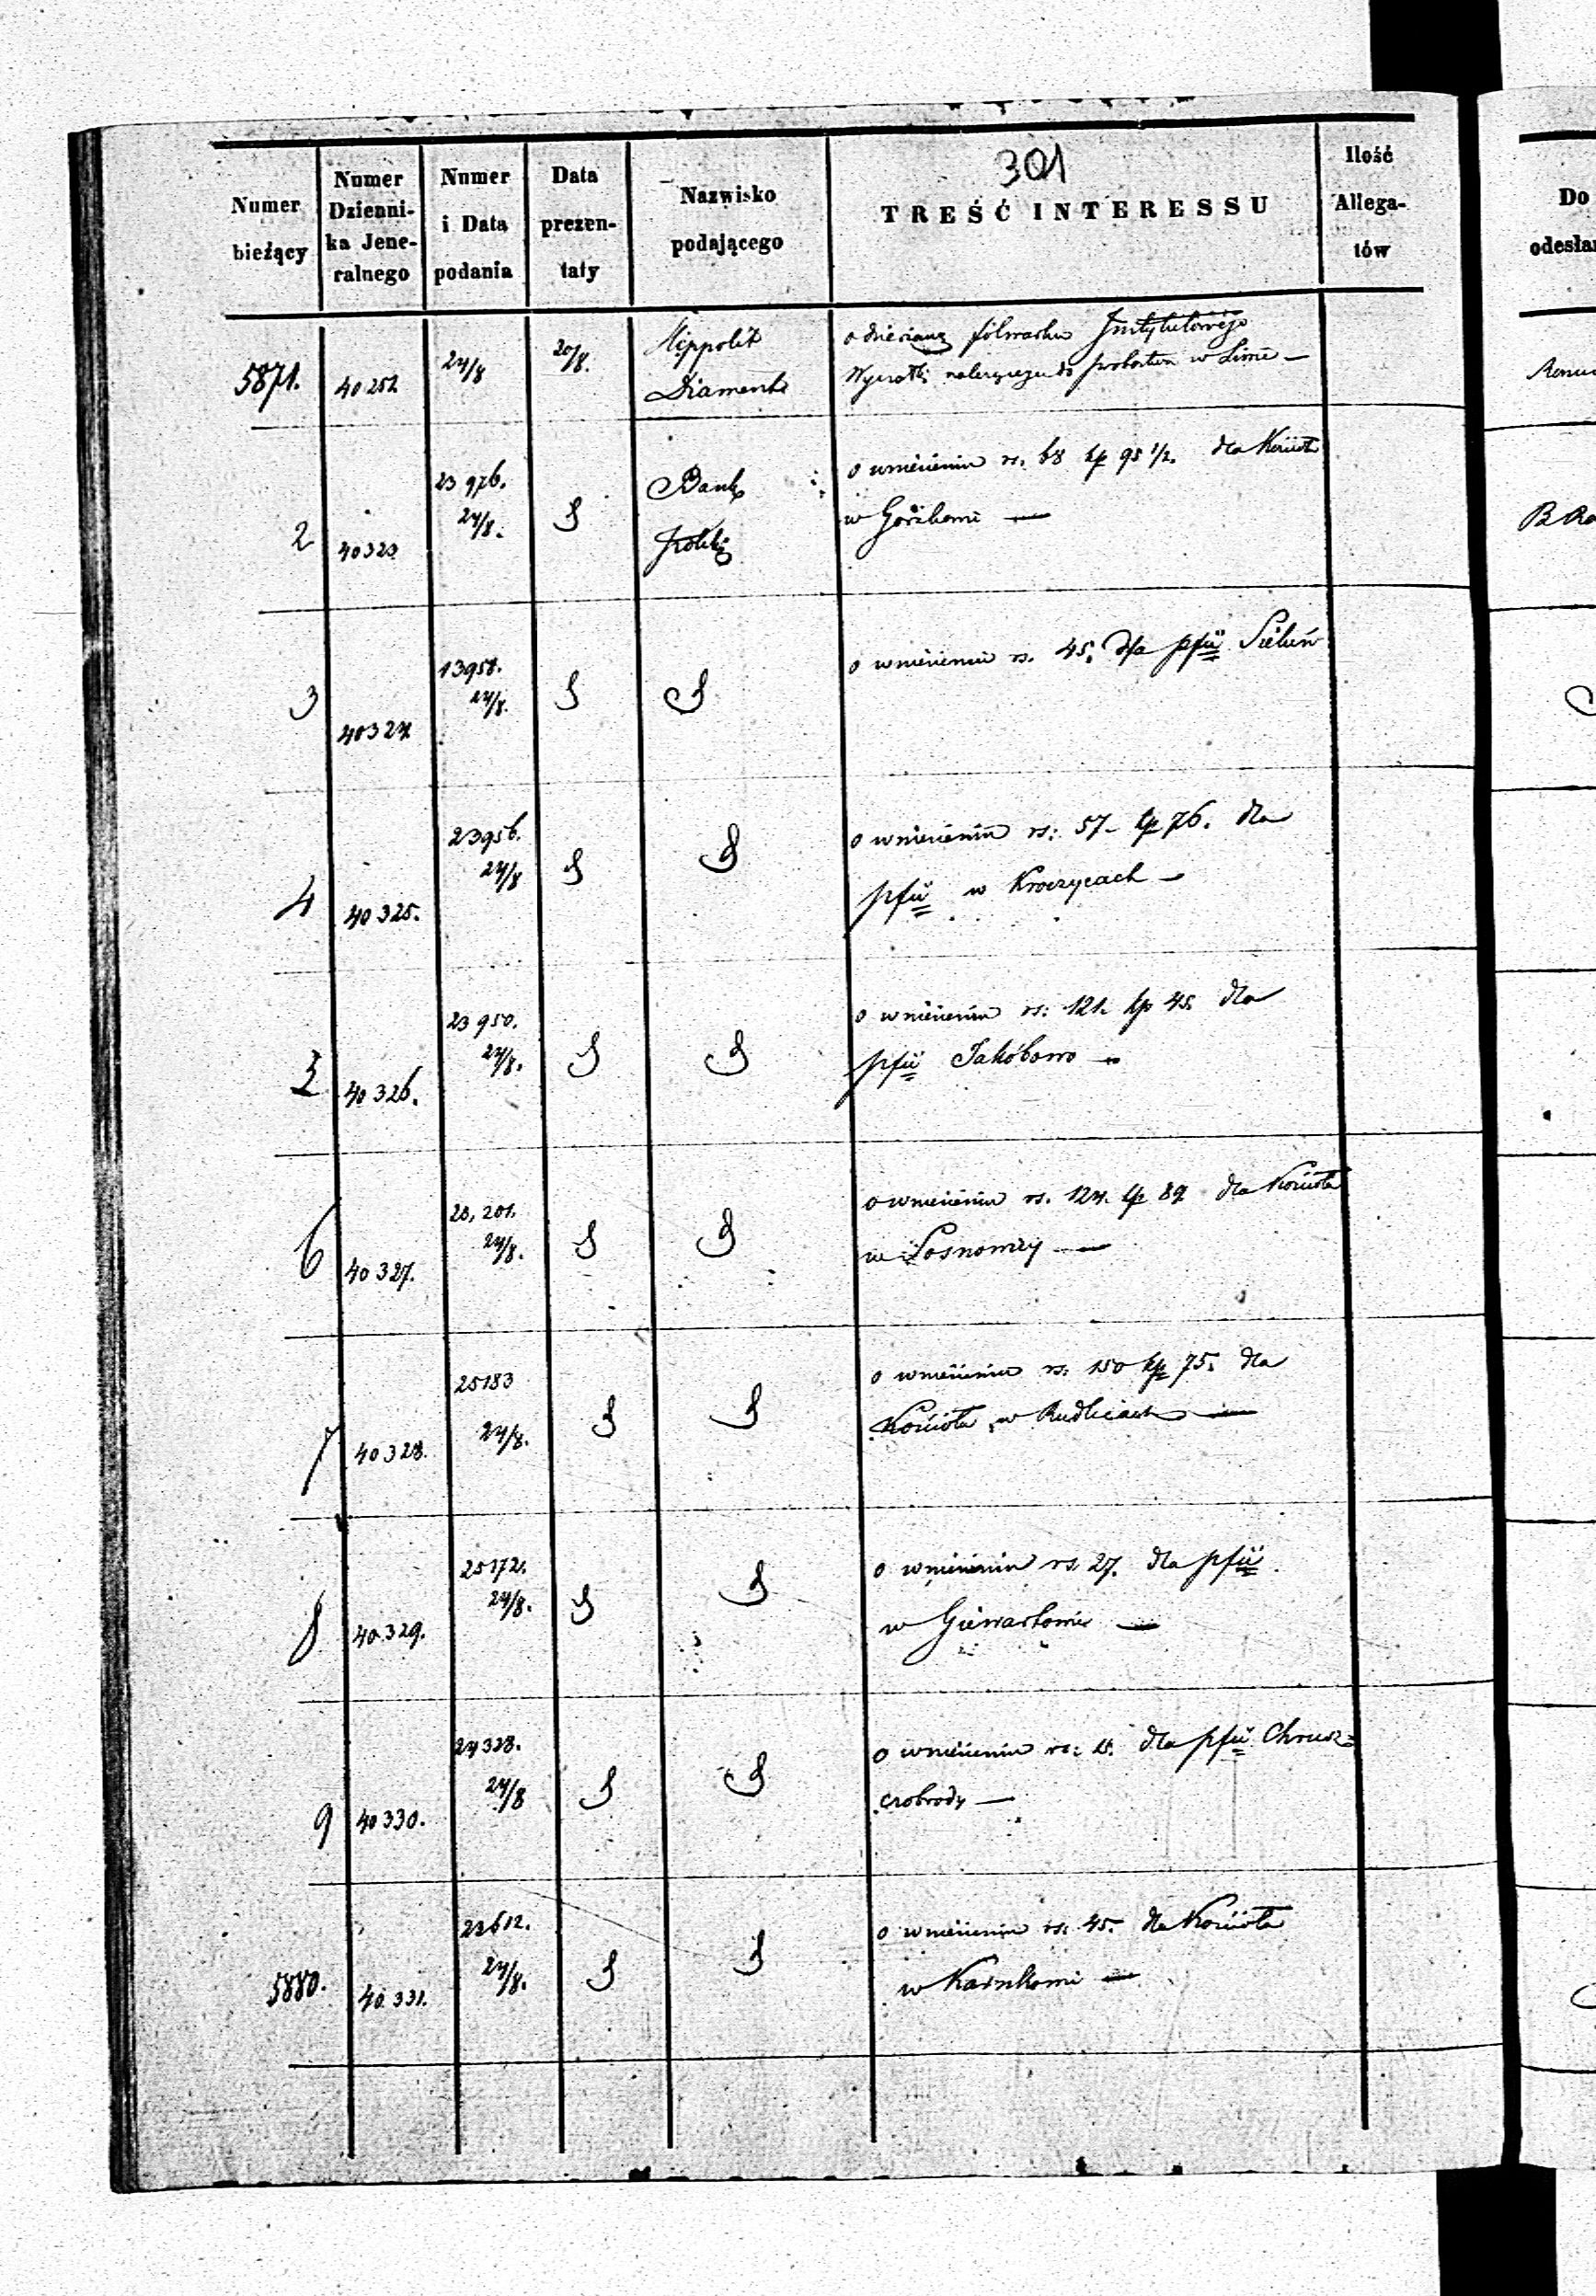 301
Numer bieżący
Numer Dzienni-
ka Jene-
ralnego
Numer i Data podania
Data prezen-
taty
Nazwisko podającego
TREŚĆ INTERESSU
Ilość Allega-
tów
Do
odesła
5871. 40252 24/8 20/8. Hippolit o folwarku Instytutowego
Diament należącego do probostwa w
2 40323 23976. 24/8. Bank o wniesieniu rs. 68 kp 95 1/2. dla Kościoła
Polski w Gorzkowie —
3 40324 13958. 24/8. o wniesieniu rs. 45. dla pfii Sieluń
4 40325. 23956. 24/8 o wniesieniu rs: 57 kp 76. dla
pfii w Kroczycach —
5 40326. 23950. 24/8. o wniesieniu rs: 121. kp 45. dla
pfii Jakóbowo —
6 40327. 20,201. 24/8. o wniesieniu rs. 124. kp 89 dla Kościoła
w Sosnowicy —
7 40328. 25183 24/8. o wniesieniu rs. 150 kp 75. dla
Kościoła w Rudlicach —
8 40329. 25172. 24/8. o wniesieniu rs. 27. dla pfii
w Giewartowie —
9 40330. 24328. 24/8 o wniesieniu rs: dla pfii Chrusz=
czobrody —
5880. 40331. 22612. 24/8. o wniesieniu rs. 45. dla Kościoła
w Karnkowie —